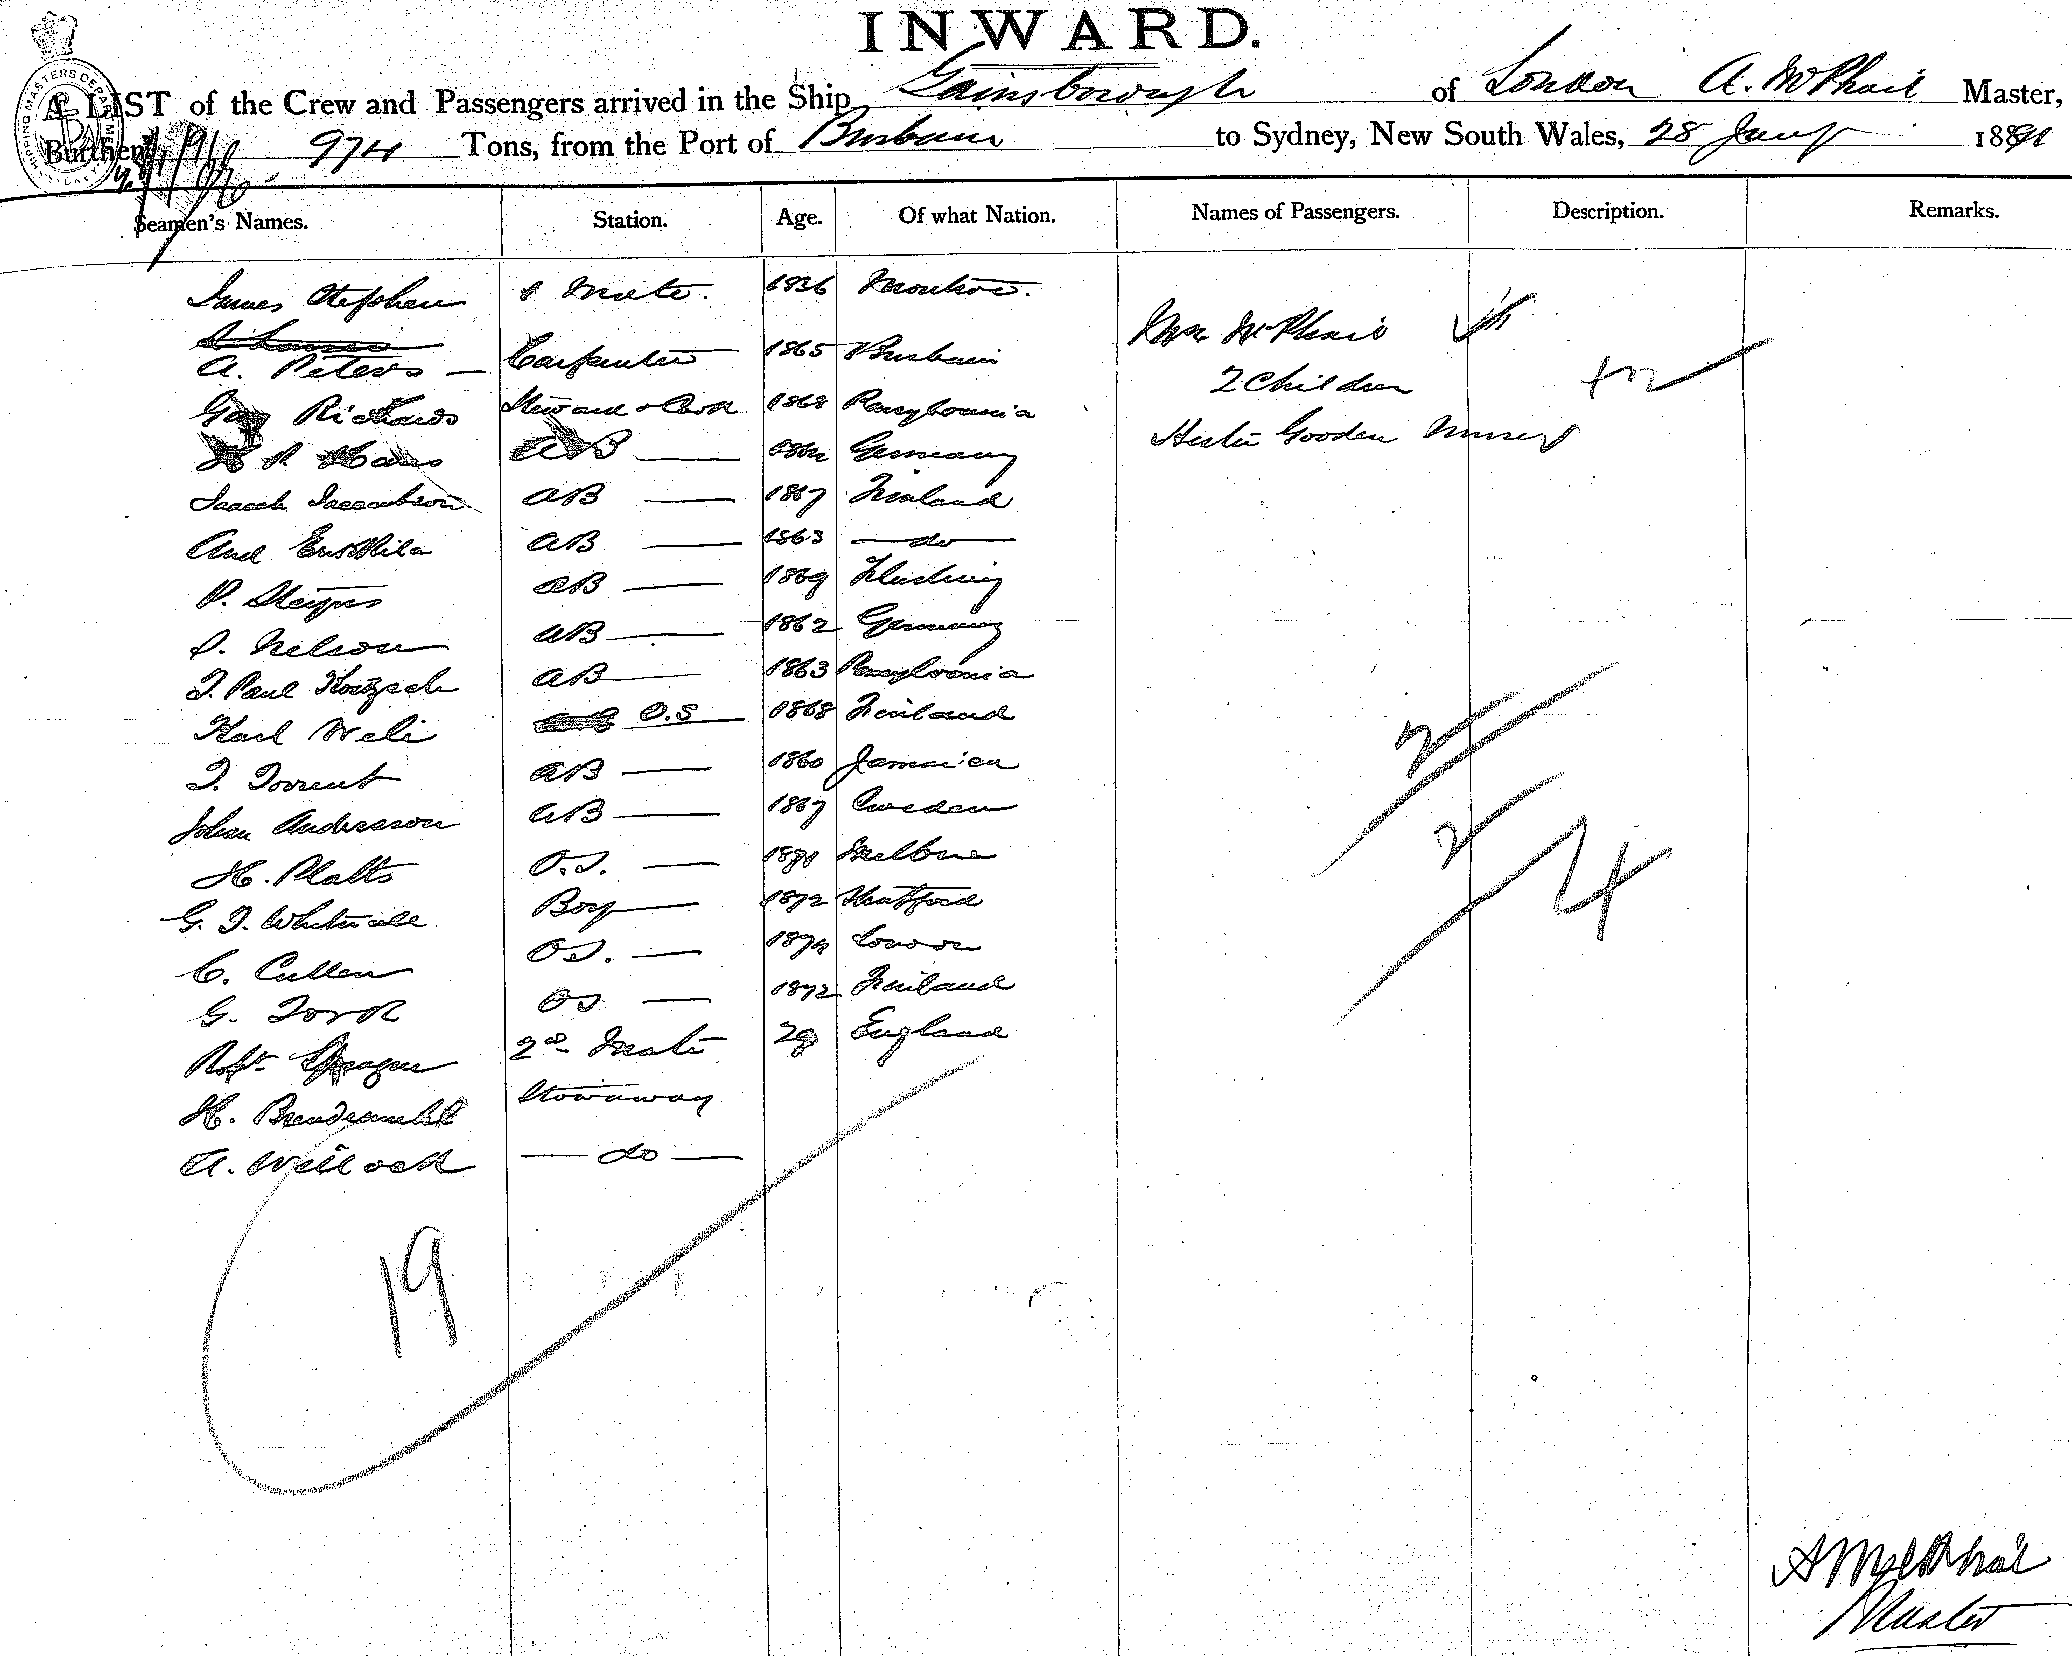 INWARD.
A LIST of the Crew and Passengers arrived in the Ship Gainsborough of London A. McPhail Master,
Burthen 974 Tons, from the Port of Brisbane to Sydney, New South Wales, 28 Jany 1891
Seamen's Names. Station. Age. Of what Nation. Names of Passengers. Description. Remarks.
James Stephen 1 Mate. 1836 Montrose. Mrs McPhail
A. Peters — Carpenter 1865 Brisbane
2 Children
Geo Richards Steward & Cook 1868 Pensylvania
AB Germany Hester Gooden Nurse
Isaach Isaacabson AB 1867 Finland
And Erikkila AB 1863 do
P. AB 1869 Flushing
P. Nelson AB 1862 Germany
T. Paul AB 1863 Pensylvania
Karl Weli O.S 1868 Finland
T. Torrent AB 1860 Jamaica
Johan Andersson AB 1867 Sweden
H. Platts O.S. Melbne
G. T. Boy 1872 Stratford
C. Cullen OS. London
G. Tork OS 1872 Finland
Robt 2nd Mate England
H. Stowaway
A. Willock do
2
2
4
19
A McPhail
Master